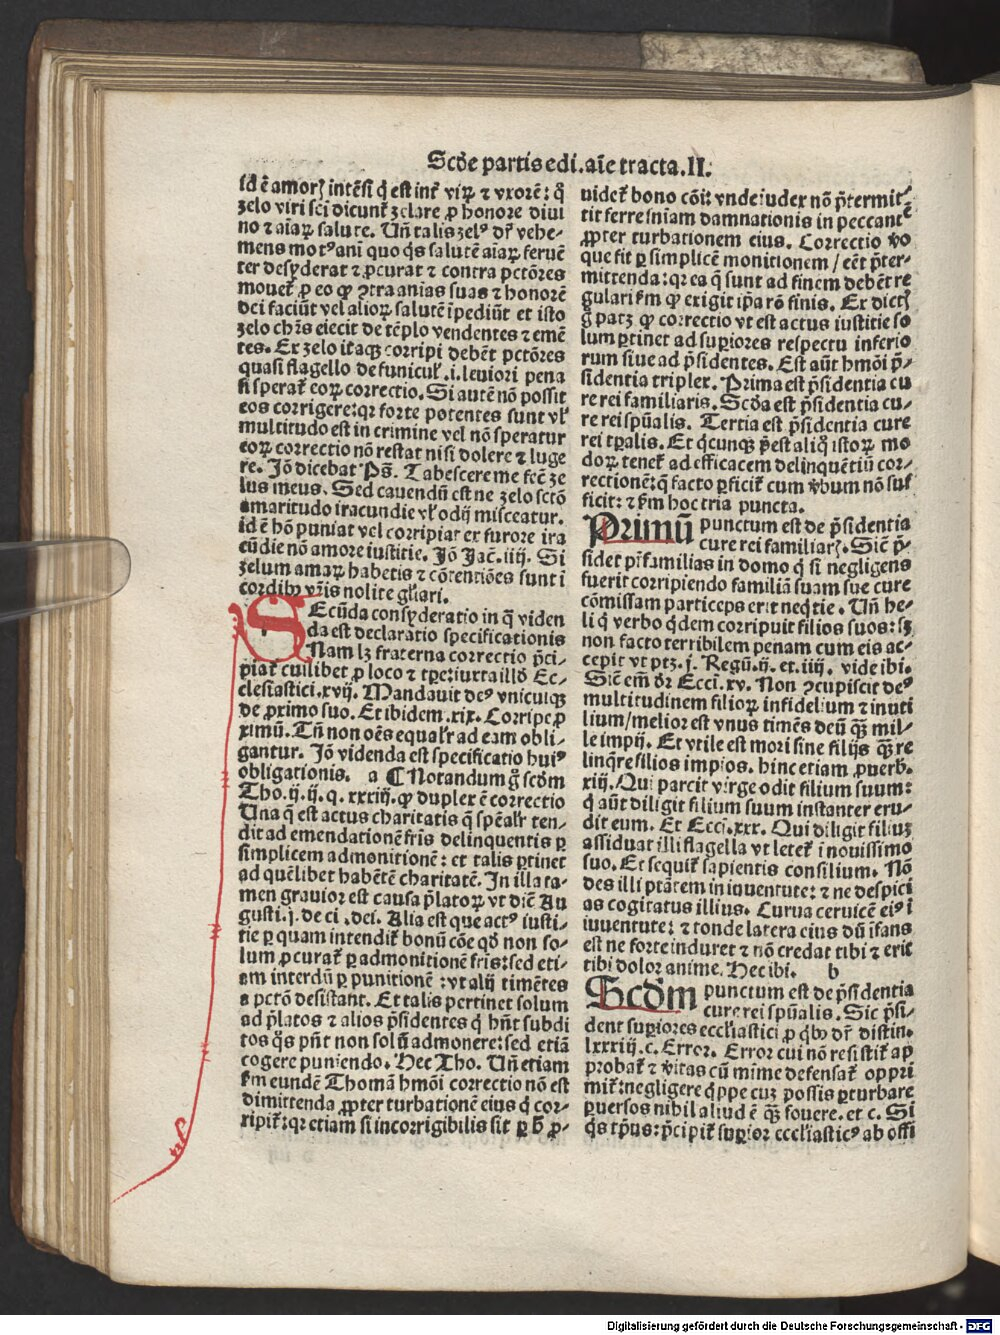 Scd̄e partis edi.aīe tracta.II.
id ē amorꝭ intēsi q̄ est int̄ viꝝ ⁊ vxorē: q̄
zelo viri sci dicunt̄ zelare ꝓ honore diui
no ⁊ aīaꝝ salute. Uñ talis zelꝰ dr̄ vehe-
mens motꝰ anī quo q̇s salutē aīaꝝ feruē
ter desyderat ⁊ ꝓcurat ⁊ contra pctōres
mouet̄ ꝓ eo ꝙ ꝯtra anias suas ⁊ honorē
dei faciūt vel alioꝝ salutē īpediūt et isto
zelo chr̄s eiecit de tēplo vendentes ⁊ emē
tes. Ex zelo itaqꝫ corripi debēt pctōres
quasi flagello de funicul̄.i.leuiori pena
si sperat̄ eoꝝ correctio. Si autē nō possit
eos corrigere:qꝛ forte potentes sunt vl̄
multitudo est in crimine vel nō speratur
eoꝝ correctio nō restat nisi dolere ⁊ luge
re. Jō dicebat Ps̄. Tabescere me fecē ze
lus meus. Sed cauendū est ne zelo sctō
amaritudo iracundie vl̄ odij misceatur.
id ē hō puniat vel corripiat ex furore ira
cūdie nō amore iustitie. Jō Jac̄.iiij. Si
zelum amaꝝ habetis ⁊ cōtentiōes sunt ī
cordibꝰ vr̄is nolite gl̄iari.
SEcūda consyderatio in q̄ viden
da est declaratio specificationis
Nam lꝫ fraterna correctio p̄ci-
piat̄ cuilibet ꝓ loco ⁊ tꝑe:iuxta illḋ Ec-
clesiastici.xvij. Mandauit deꝰ vnicuiqꝫ
de ꝓximo suo. Et ibidem.xix. Corripe ꝓ
ximū. Tñ non oēs equalr̄ ad eam obli-
gantur. Jō videnda est specificatio huiꝰ
obligationis. a ¶ Notandum g̊ scd̄m
Tho.ij.ij.q.xxxiij.ꝙ duplex ē correctio
Una q̄ est actus charitatis q̄ spēalr̄ ten-
dit ad emendationē fr̄is delinquentis ꝑ
simplicem admonitionē: et talis ꝑtinet
ad quēlibet habētē charitatē. Jn illa ta-
men grauior est causa p̄latoꝝ vt dicē Au
gusti.j.de ci.dei. Alia est que actꝰ iusti-
tie ꝑ quam intendit̄ bonū cōe qḋ non so-
lum ꝓcurat̄ ꝑ admonitionē fr̄is:sed eti-
am interdū ꝑ punitionē:vt alij timētes
a pctō desistant. Et talis pertinet solum
ad p̄latos ⁊ alios p̄sidentes q̇ hñt subdi
tos q̇s pñt non solū admonere:sed etiā
cogere puniendo. Hec Tho. Uñ etiam
ẜm eundē Thomā hmōi correctio nō est
dimittenda ꝓpter turbationē eius q̇ cor-
ripit̄:qꝛ etiam si incorrigibilis sit ꝑ ḃ ꝓ-
uidet̄ bono cōi: vnde iudex nō p̄termit-
tit ferre sn̄iam damnationis in peccantē
ꝓpter turbationem eius. Correctio v̊o
que fit ꝑ simplicē monitionem / eēt p̄ter-
mittenda:qꝛ ea q̄ sunt ad finem debēt re
gulari ẜm ꝙ exigit ip̄a rō finis. Ex dictꝭ
g̊ patꝫ ꝙ correctio vt est actus iustitie so
lum ꝑtinet ad suꝑiores respectu inferio
rum siue ad p̄sidentes. Est aūt hmōi p̄-
sidentia triplex. Prima est p̄sidentia cu
re rei familiaris. Scd̄a est p̄sidentia cu-
re rei spūalis. Tertia est p̄sidentia cure
rei tꝑalis. Et q̇cunqꝫ p̄est aliq̊ istoꝝ mo
doꝝ tenet̄ ad efficacem delinquētiū cor-
rectionē:q̄ facto ꝑficit̄ cum v̊bum nō suf
ficit: ⁊ ẜm hoc tria puncta.
Primū punctum est de p̄sidentia
cure rei familiarꝭ. Sic̄ p̄-
sidet pr̄familias in domo q̇ si negligens
fuerit corripiendo familiā suam sue cure
cōmissam particeps erit neq̇tie. Uñ he-
li q̇ verbo q̇dem corripuit filios suos: sꝫ
non facto terribilem penam cum eis ac-
cepit vt ptꝫ.j. Regū.ij.et.iiij. vide ibi.
Sic em̄ dr̄ Eccī.xv. Non ꝯcupiscit deꝰ
multitudinem filioꝝ infidelium ⁊ inuti
lium/melior est vnus timēs deū qꝫ̄ mil-
le impij. Et vtile est mori sine filijs qꝫ̄ re
linq̄re filios impios. hinc etiam ꝓuerb.
xiij. Qui parcit virge odit filium suum:
q̇ aūt diligit filium suum instanter eru-
dit eum. Et Eccī.xxx. Qui diligit filiuꝫ
assiduat illi flagella vt letet̄ ī nouissimo
suo. Et sequit̄ sapientis consilium. Nō
des illi ptātem in iuuentute: ⁊ ne despici
as cogitatus illius. Curua ceruicē eiꝰ ī
iuuentute: ⁊ tonde latera eius dū īfans
est ne forte induret ⁊ nō credat tibi ⁊ erit
tibi dolor anime. Hec ibi. b
Scd̄m punctum est de p̄sidentia
cure rei spūalis. Sic p̄si-
dent suꝑiores eccl̄iastici ꝓ q̊bꝰ dr̄ distin.
lxxxiij.c. Error. Error cui nō resistit̄ ap
probat̄ ⁊ v̊itas cū mime defensat̄ oppri
mit̄:negligere q̇ppe cuꝫ possis ꝑturbare
ꝑuersos nihil aliud ē qꝫ̄ fouere. et c. Si
q̇s tp̄us:p̄cipit̄ suꝑior eccl̄iasticꝰ ab offi
Digitalisierung gefördert durch die Deutsche Forschungsgemeinschaft - DFG